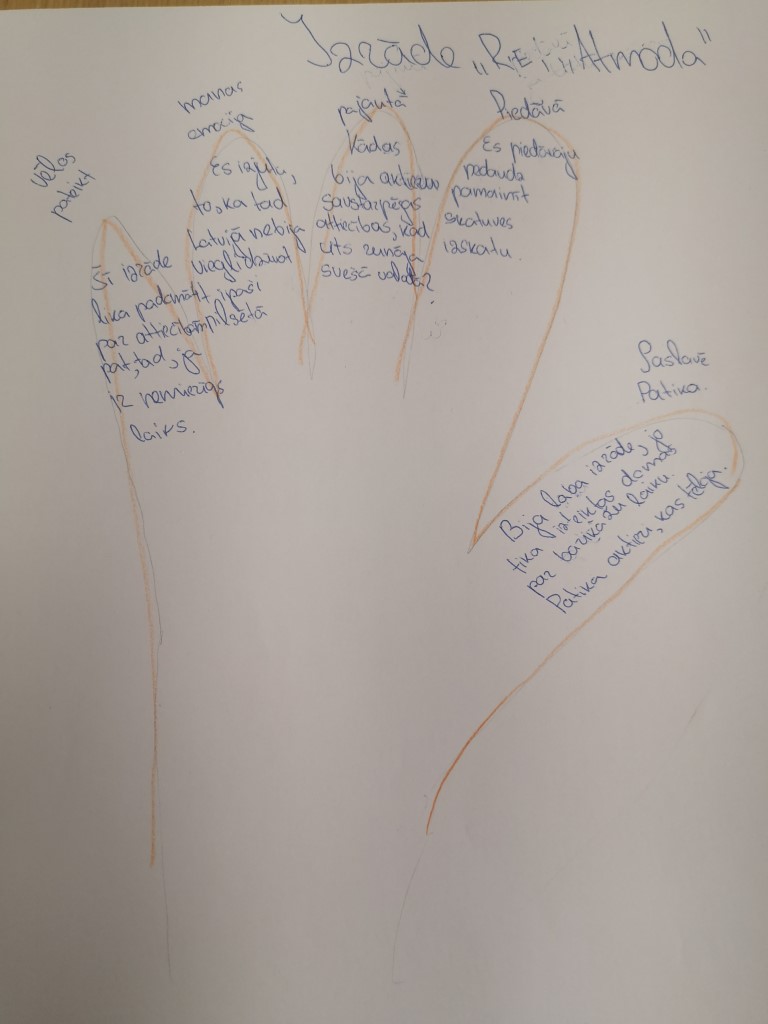 Izrāde „R.E. „Atmoda”
Vēlos
pateikt
Šī izrāde
lika padomāt īpaši
par attiecībām pilsētā
pat, tad, ja
ir nemierīgs
laiks.
manas
emocija
Es izjutu,
to, ka tad
Latvijā nebija
viegli dzīvot
pajautā
Kādas
bija aktieru
savstarpēgs
attiecības, kad
cits runāja
svešā valodā?
Piedāvā
Es piedāvāju
nedaudz
pamainīt
skatuves
izskatu.
Saslavē
Patika.
Bija laba izrāde, jo
tika izteiktas domas
par barikāžu laiku.
Patika aktieri, kas tēloja.